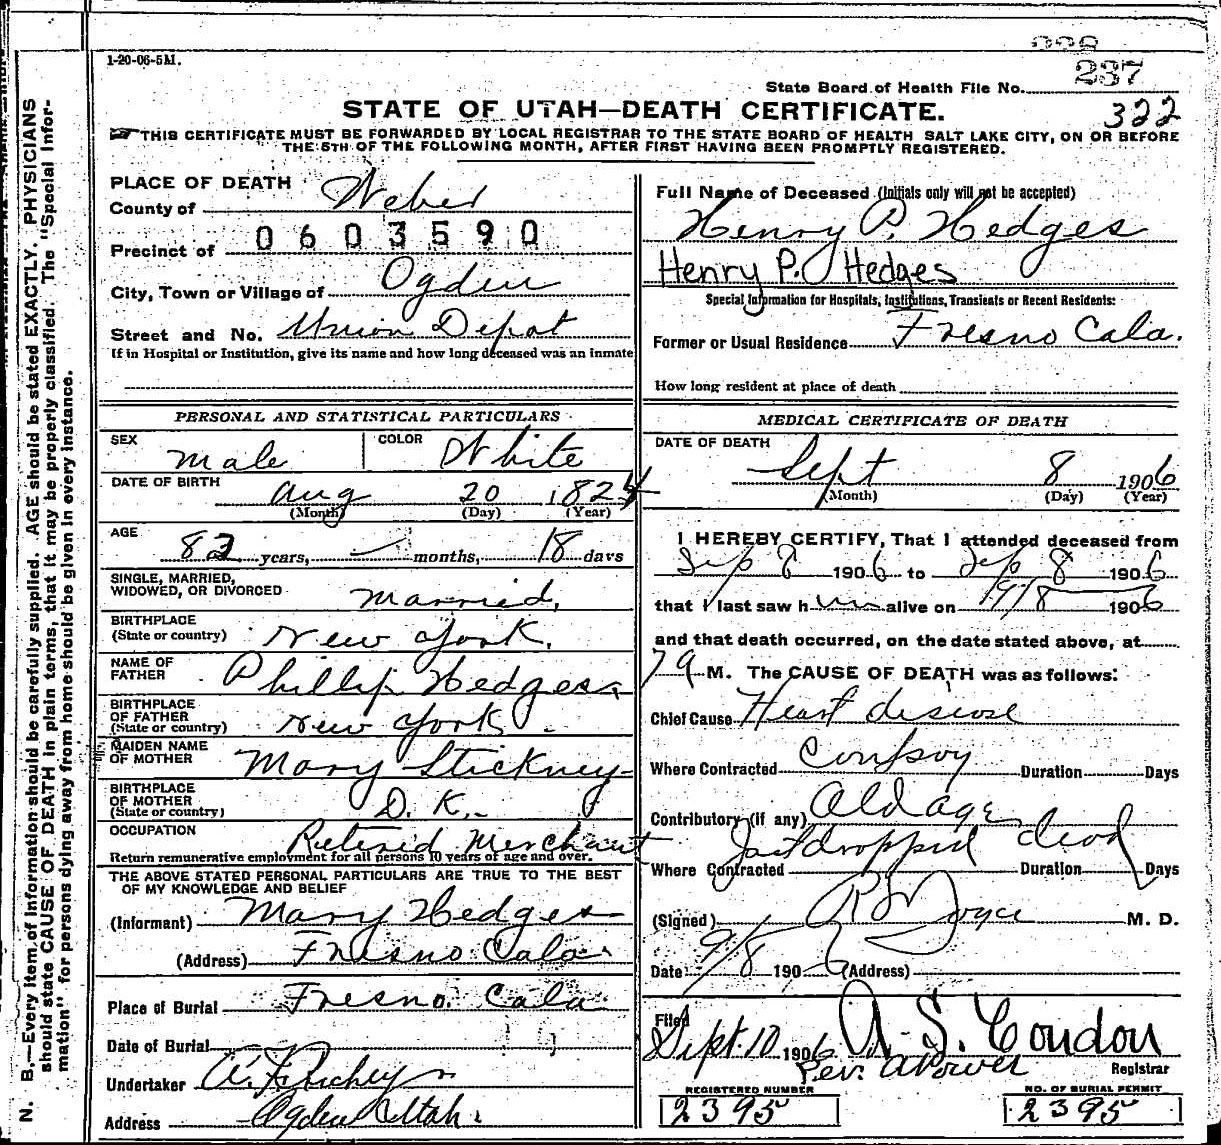 1-20-06-5M.
State Board of Health File No. 237
STATE OF UTAH—DEATH CERTIFICATE.
322
THIS CERTIFICATE MUST BE FORWARDED BY LOCAL REGISTRAR TO THE STATE BOARD OF HEALTH SALT LAKE CITY, ON OR BEFORE
THE 5TH OF THE FOLLOWING MONTH, AFTER FIRST HAVING BEEN PROMPTLY REGISTERED.
PLACE OF DEATH
County of Weber
Precinct of 0603590
City, Town or Village of Ogden
Street and No. Union Depot
If in Hospital or Institution, give its name and how long deceased was an inmate
PERSONAL AND STATISTICAL PARTICULARS
SEX Male COLOR White
DATE OF BIRTH Aug 20 1824
(Month) (Day) (Year)
AGE 82 years, — months, 18 days
SINGLE, MARRIED,
WIDOWED, OR DIVORCED Married,
BIRTHPLACE
(State or country) New York.
NAME OF
FATHER Phillip Hedges
BIRTHPLACE
OF FATHER
(State or country) New York
MAIDEN NAME
OF MOTHER Mary Stickney
BIRTHPLACE
OF MOTHER
(State or country) D. K.
OCCUPATION Reterid Merchant
Return remunerative employment for all persons 10 years of age and over.
THE ABOVE STATED PERSONAL PARTICULARS ARE TRUE TO THE BEST
OF MY KNOWLEDGE AND BELIEF
(Informant) Mary Hedges
(Address) Fresno Cala
Place of Burial Fresno. Cala
Date of Burial
Undertaker
Address Ogden Utah.
Full Name of Deceased (Initials only will not be accepted)
Henry P. Hedges
Henry P. Hedges
Special Information for Hospitals, Institutions, Transients or Recent Residents:
Former or Usual Residence Fresno Cala.
How long resident at place of death
MEDICAL CERTIFICATE OF DEATH
DATE OF DEATH
Sept 8 1906
(Month) (Day) (Year)
I HEREBY CERTIFY, That I attended deceased from
Sep 8 1906 to Sep 8 1906
that I last saw h alive on 1906
and that death occurred, on the date stated above, at
M. The CAUSE OF DEATH was as follows:
Chief Cause Heart disease
Where Contracted Duration Days
Contributory (if any) Old age
Just dropped dead
Where Contracted Duration Days
(Signed) Joyce M. D.
Date 9/8 1906 (Address)
Filed
Sept 10 1906 A. S. Condon
Per. Registrar
REGISTERED NUMBER
2395
NO. OF BURIAL PERMIT
2395
N. B.—Every item of information should be carefully supplied. AGE should be stated EXACTLY. PHYSICIANS
should state CAUSE OF DEATH in plain terms, that it may be properly classified. The "Special Infor-
mation" for persons dying away from home should be given in every instance.